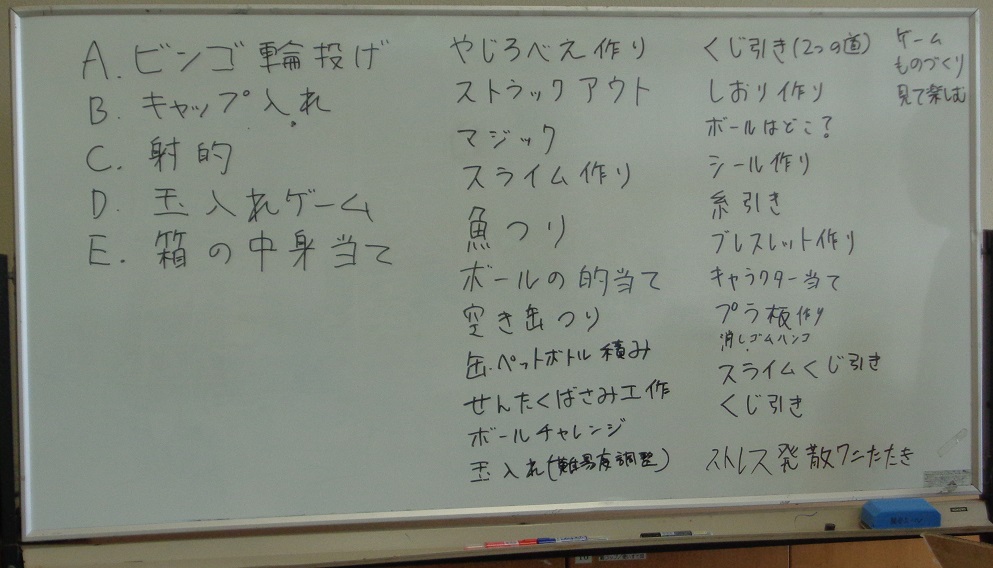 A. ビンゴ輪投げ
B. キャップ入れ
C. 射的
D. 玉入れゲーム
E. 箱の中身当て
やじろべえ作り
ストラックアウト
マジック
スライム作り
魚つり
ボールの的当て
空き缶つり
缶・ペットボトル積み
せんたくばさみ工作
ボールチャレンジ
玉入れ(難易度調整)
くじ引き(2つの道)
しおり作り
ボールはどこ?
シール作り
糸引き
ブレスレット作り
キャラクター当て
プラ板作り
消しゴムハンコ
スライムくじ引き
くじ引き
ストレス発散ワニたたき
ゲーム
ものづくり
見て楽しむ